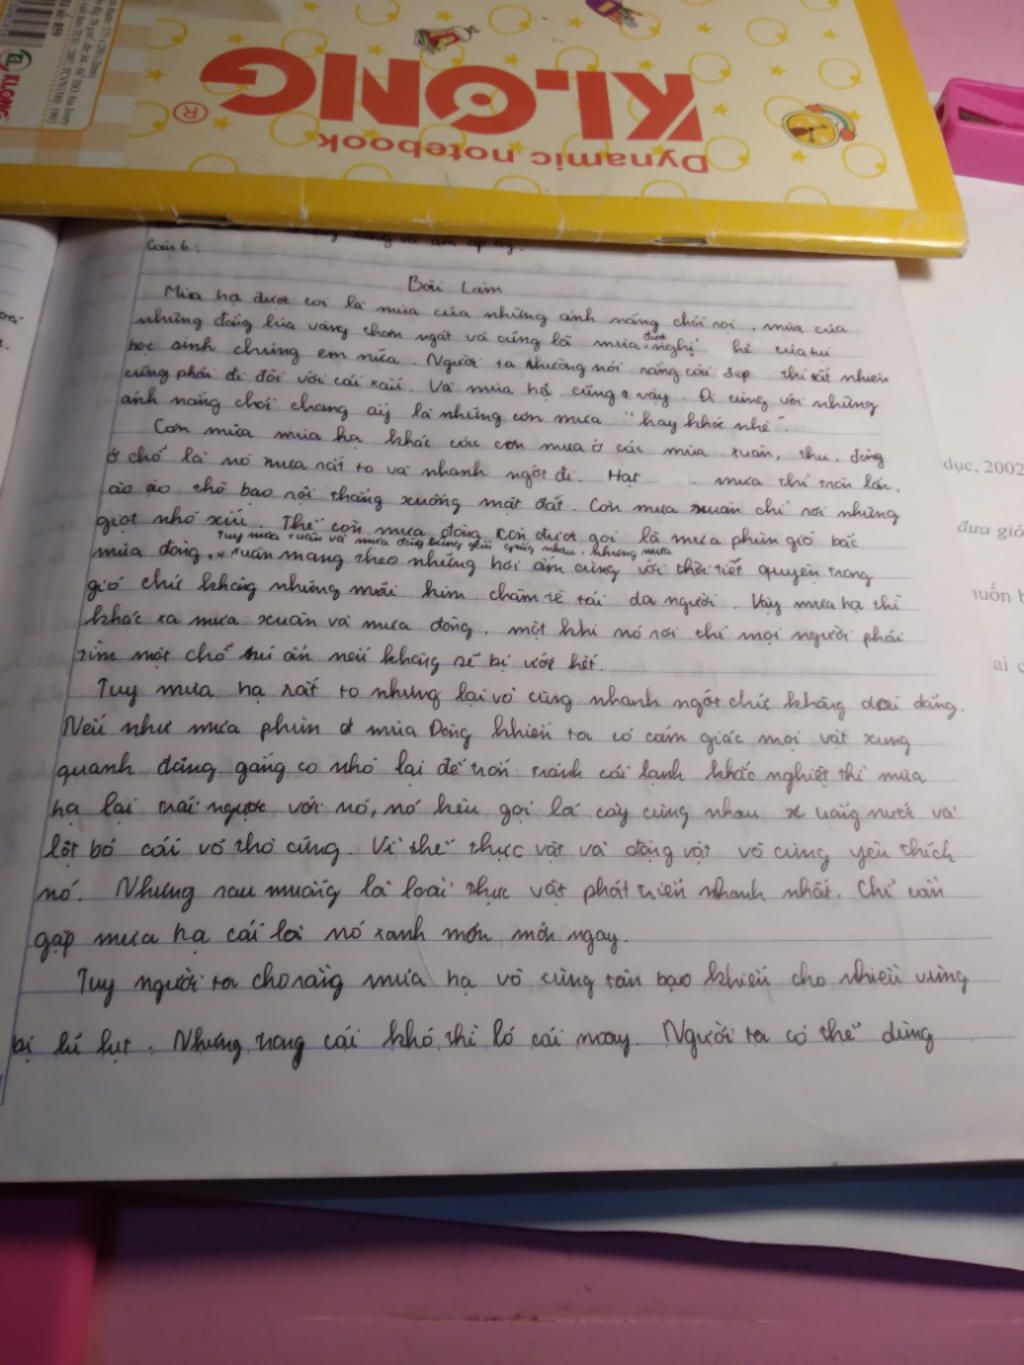 KLONG
KI.ONG®
Dynamic notebook
Câu 6:
Bài Làm
Mùa hạ được coi là mùa của những ánh nắng chói rọi, mùa của
những đồng lúa vàng thơm ngát và cũng là mùa được nghỉ hè của
học sinh chúng em nữa. Người ta thường nói rằng cái đẹp thì tất nhiên
cũng phải đi đôi với cái xấu. Và mùa hạ cũng vậy. Đi cùng với những
ánh nắng chói chang ấy là những cơn mưa "hay khóc nhè".
Cơn mưa mùa hạ khác các cơn mưa ở các mùa xuân, thu, đông
ở chỗ là nó mưa rất to và nhanh ngớt đi. Hạt mưa thì tròn lẳn,
ào ào thô bạo rơi thẳng xuống mặt đất. Còn mưa xuân chỉ rơi những
giọt nhỏ xíu. Thế còn mưa đông còn được gọi là mưa phùn gió bấc
Tuy mưa xuân và mưa đông giống nhau, nhưng mưa
mùa đông. xuân mang theo những hơi ấm cùng với thời tiết quyện trong
gió chứ không những mũi kim châm rẽ tái da người. Vậy mưa hạ thì
khác xa mưa xuân và mưa đông, một khi nó rơi thì mọi người phải
tìm một chỗ trú ẩn nếu không sẽ bị ướt hết.
Tuy mưa hạ rất to nhưng lại vô cùng nhanh ngớt chứ không dai dẳng.
Nếu như mưa phùn ở mùa Đông khiến ta có cảm giác mọi vật xung
quanh đang gắng co nhỏ lại để trốn tránh cái lạnh khắc nghiệt thì mưa
hạ lại trái ngược với nó, nó kêu gọi lá cây cùng nhau x uống nước và
lột bỏ cái vỏ thô cứng. Vì thế thực vật và động vật vô cùng yêu thích
nó. Nhưng rau muống là loài thực vật phát triển nhanh nhất. Chỉ cần
gặp mưa hạ cái là nó xanh mơn mởn ngay.
Tuy người ta cho rằng mưa hạ vô cùng tàn bạo khiến cho nhiều vùng
bị lũ lụt. Nhưng trong cái khó thì ló cái may. Người ta có thể dùng
dục, 2002
đưa gió
ai c